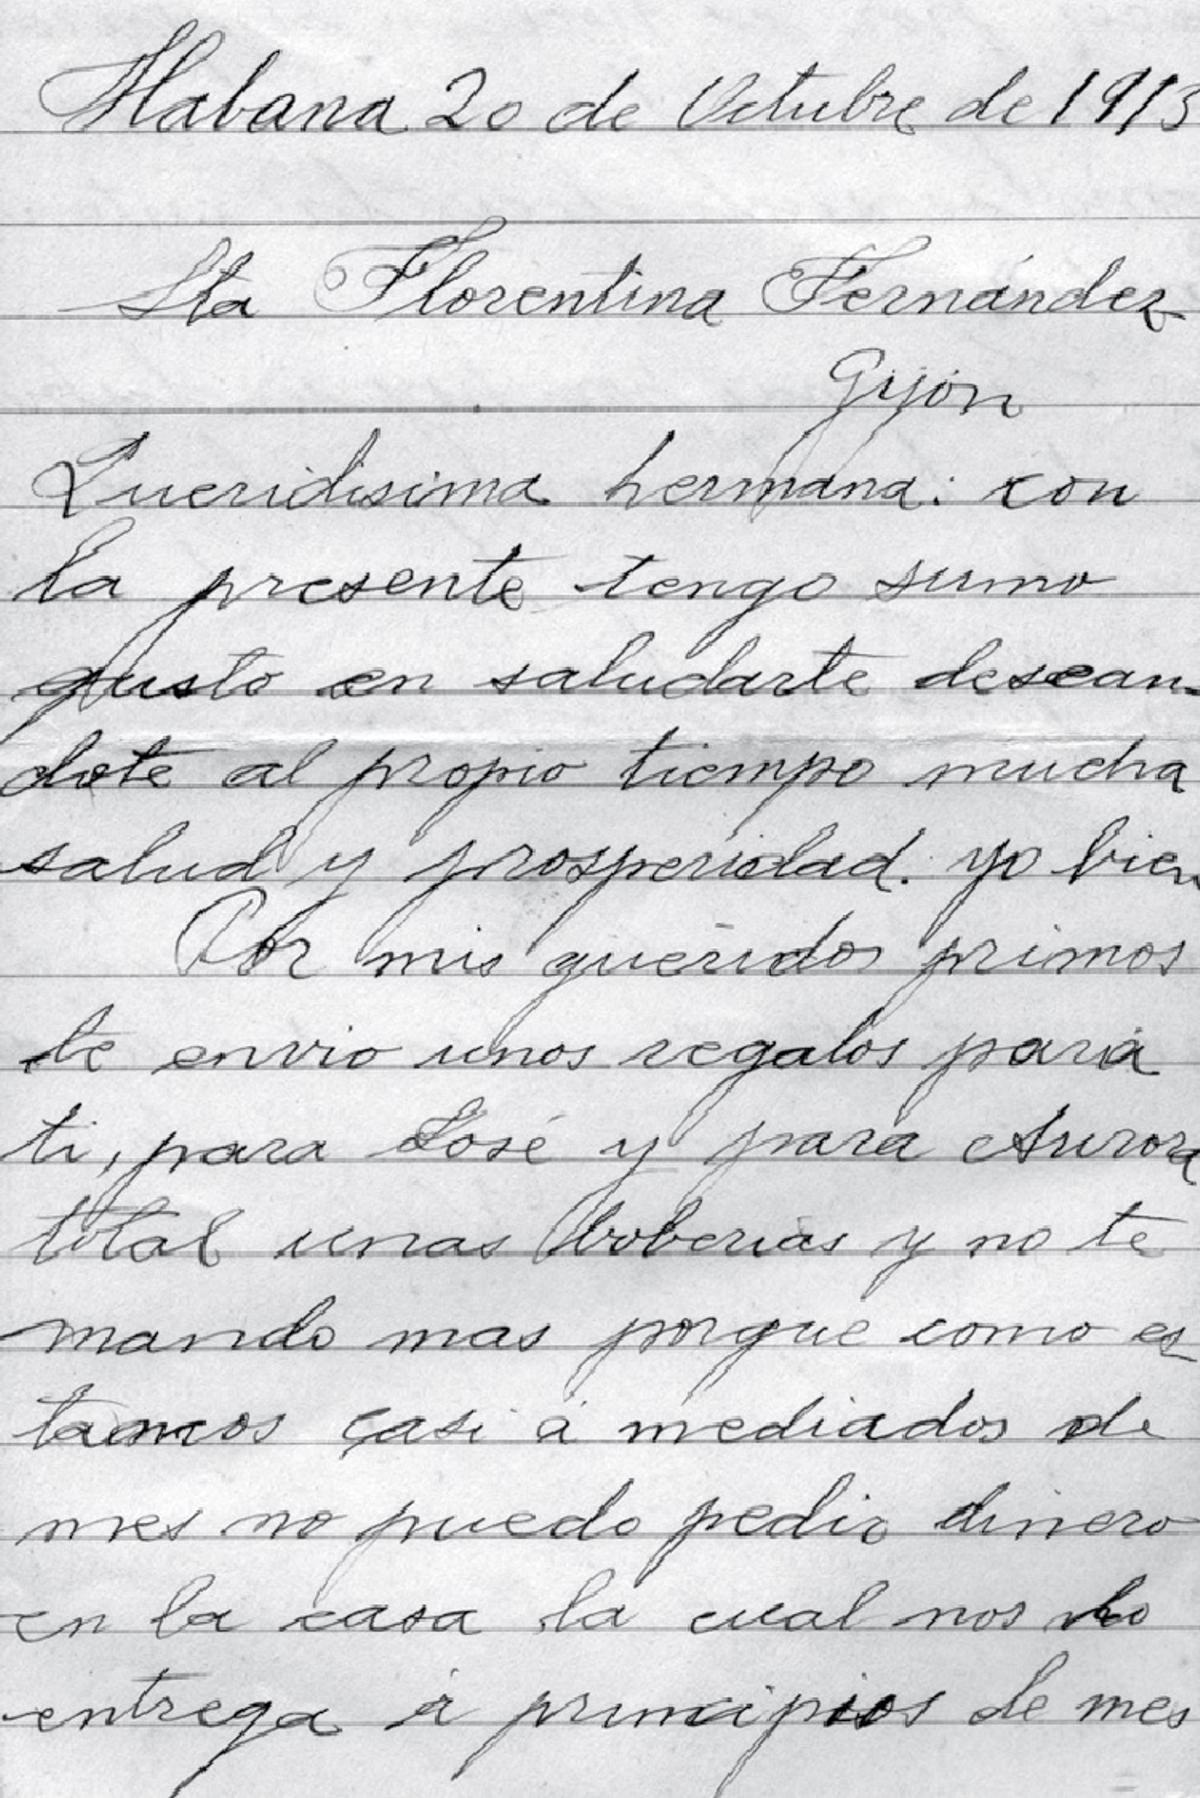 Habana 20 de Octubre de 1913
Sta Florentina Fernández
Gijón
Queridisima hermana: con
la presente tengo sumo
gusto en saludarte desean-
dote al propio tiempo mucha
salud y prosperidad. yo bien
Por mis queridos primos
te envio unos regalos para
ti, para José y para Aurora
total unas boberias y no te
mando mas porque como es_
tamos casi á mediados de
mes no puedo pedir dinero
en la casa la cual nos lo
entrega á principios de mes